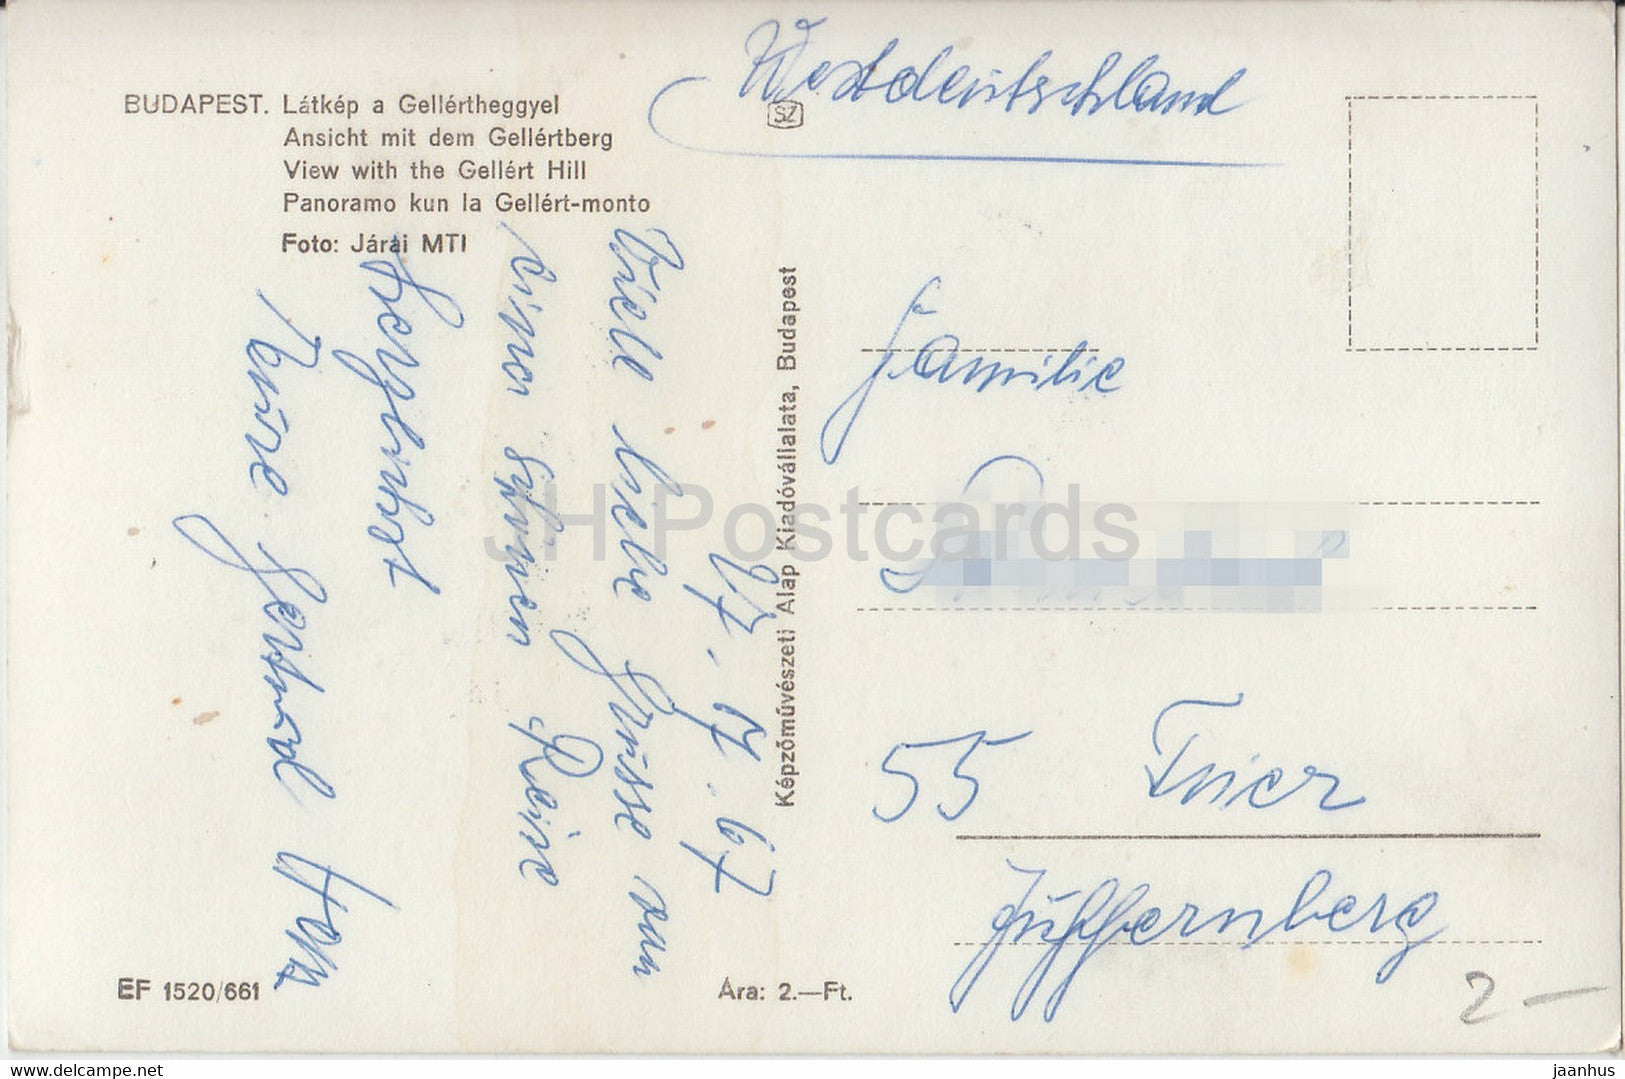 BUDAPEST. Látkép a Gellértheggyel
Ansicht mit dem Gellértberg
View with the Gellért Hill
Panoramo kun la Gellért-monto
Foto: Járai MTI
SZ
Westdeutschland
17. 7. 67
Viele liebe Grüsse von
einer schönen Reise
Herzlichst
Eure Gertrud
Képzőművészeti Alap Kiadóvállalata, Budapest
Familie
55 Trier
Züffernberg
EF 1520/661
Ára: 2.—Ft.
2-
JH Postcards
www.delcampe.net
jaanhus